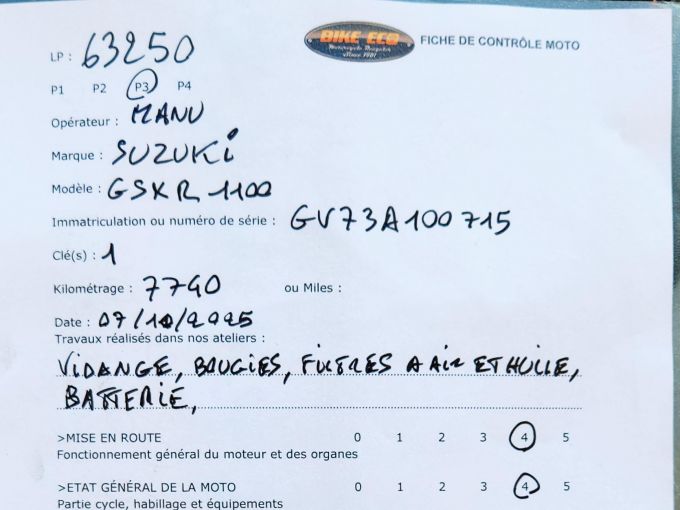 BIKE ECO
Motorcycle Bargains
Since 1981
FICHE DE CONTRÔLE MOTO
LP : 63250
P1 P2 P3 P4
Opérateur : MANU
Marque : SUZUKi
Modèle : GSXR 1100
Immatriculation ou numéro de série : GV73A100715
Clé(s) : 1
Kilométrage : 7790 ou Miles :
Date : 07/10/2025
Travaux réalisés dans nos ateliers :
ViDANGE, BOUGIES, FILTRES A AiR ET HUILE,
BATTERIE,
>MISE EN ROUTE 0 1 2 3 4 5
Fonctionnement général du moteur et des organes
>ETAT GÉNÉRAL DE LA MOTO 0 1 2 3 4 5
Partie cycle, habillage et équipements